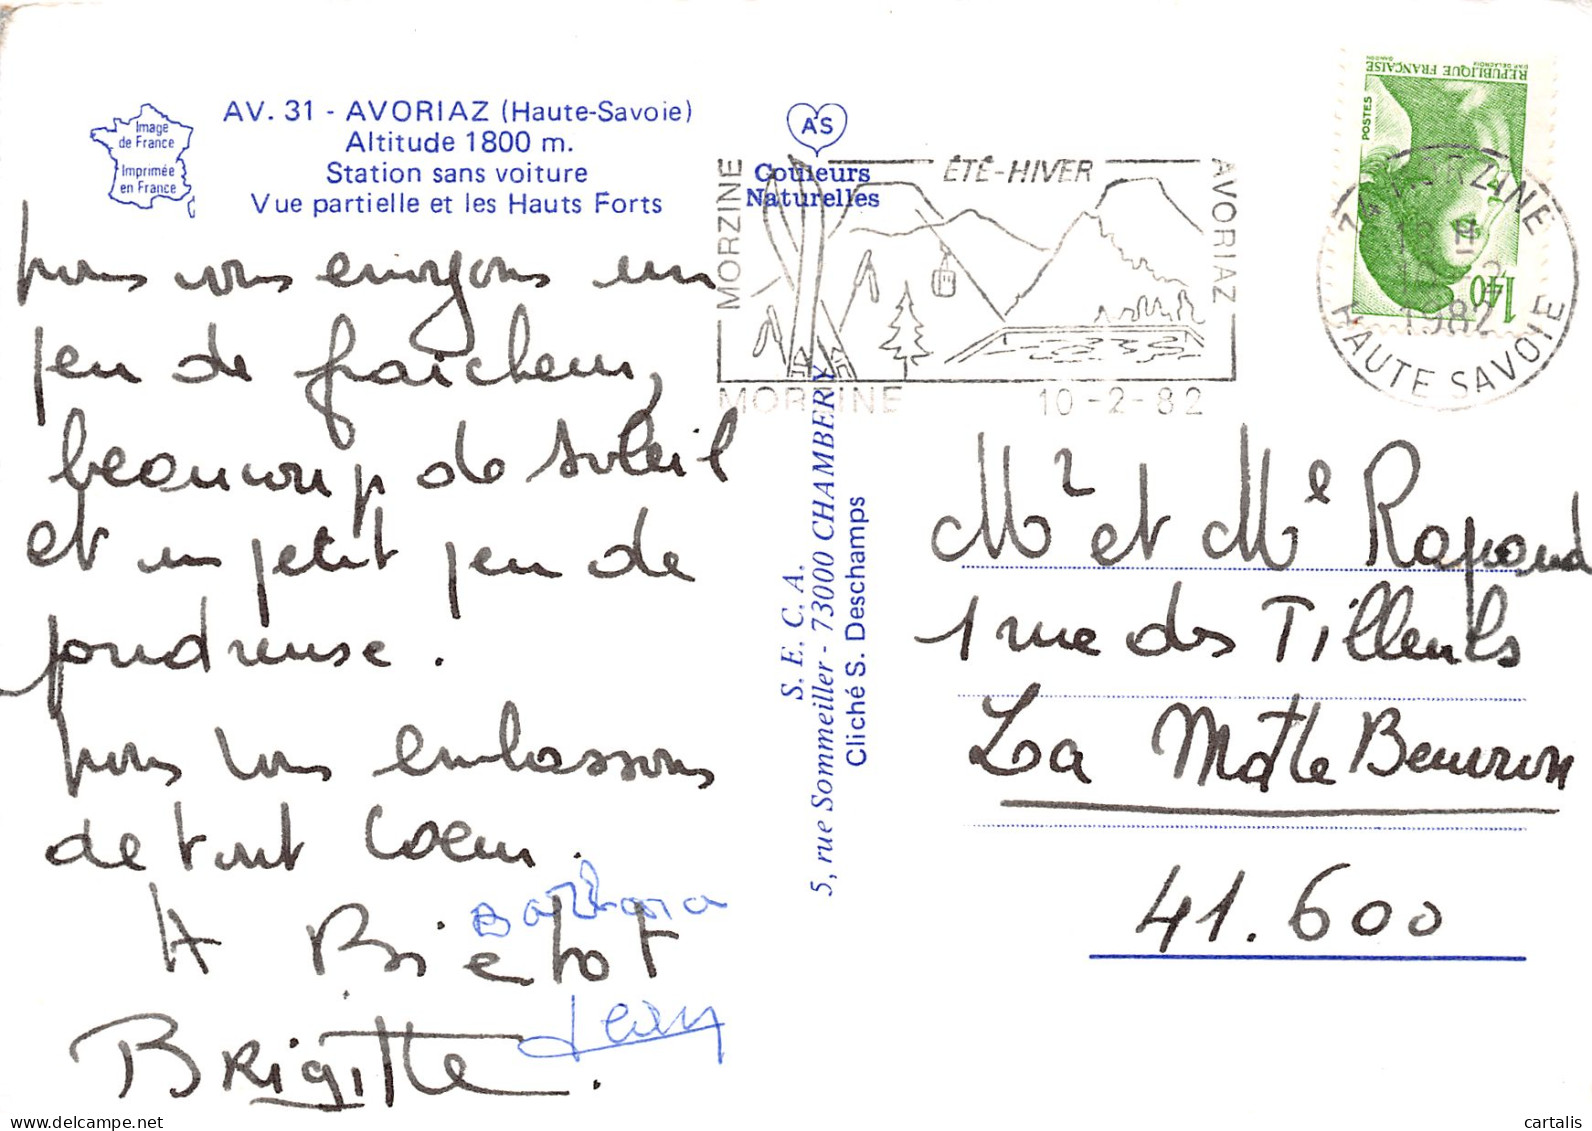 AV. 31 - AVORIAZ (Haute-Savoie)
Altitude 1800 m.
Station sans voiture
Vue partielle et les Hauts Forts
Image
de France
Imprimée
en France
nous vous envoyons un
peu de fraicheur,
beaucoup de soleil
et un petit peu de
poudreuse.
nous vous embrassons
de tout coeur.
Barbara
Jean
BRigitte.
A'S
Couleurs
Naturelles
S. E. C. A.
5, rue Sommeiller - 73000 CHAMBERY
Cliché S. Deschamps
MORZINE
ÉTÉ-HIVER
AVORIAZ
MORZINE 10-2-82
POSTES
RÉPUBLIQUE FRANÇAISE
1,40
74 MORZINE
1982
HAUTE SAVOIE
Mr et Me Rapond
1 rue des Tilleuls
La Motte Beuvron
41.600
cartalis